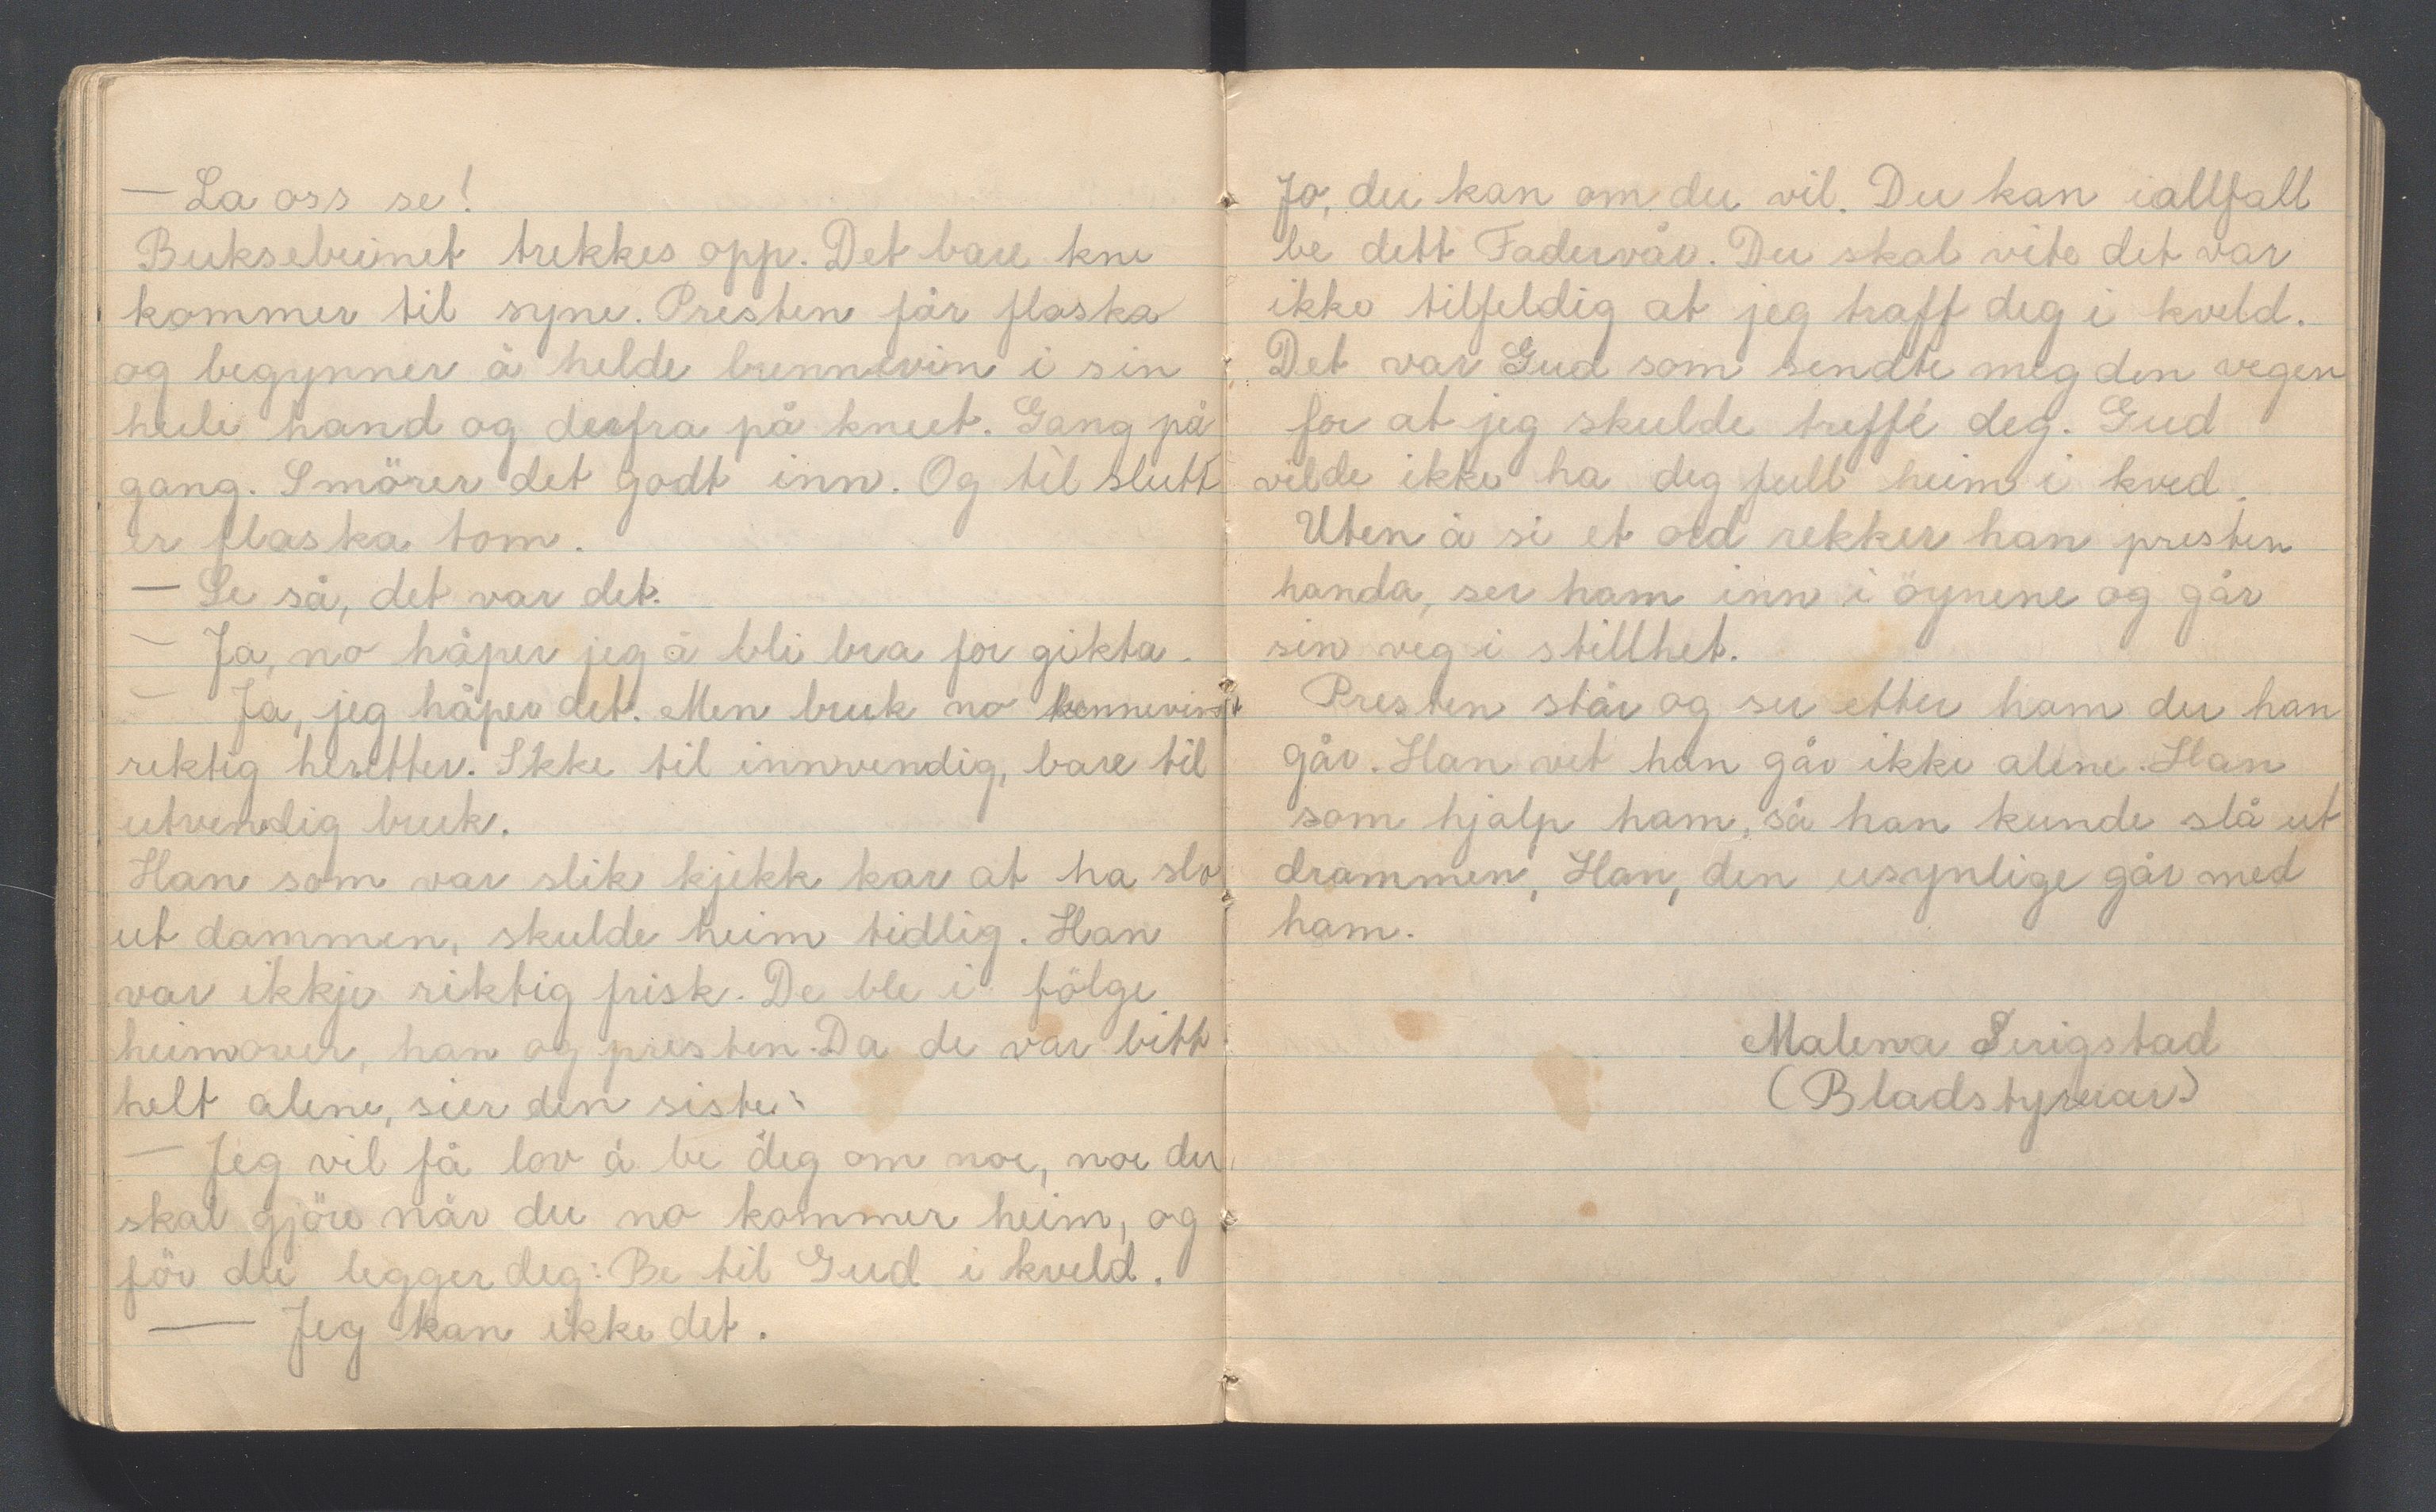 — La oss se!
Buksebeinet trekkes opp. Det bare kne
kommer til syne. Presten får flaska
og begynner å helde brennevin i sin
hule hand og derfra på kneet. Gang på
gang. Smörer det godt inn. Og til slutt
er flaska tom.
— Se så, det var det.
— Ja, no håper jeg å bli bra for gikta.
— Ja, jeg håper det. Men bruk no brennevinet
riktig heretter. Ikke til innvendig, bare til
utvendig bruk.
Han som var slik kjekk kar at ha slo
ut dammen, skulde heim tidlig. Han
var ikkje riktig frisk. De ble i fölge
heimover, han og presten. Da de var bitt
helt alene, sier den siste:
— Jeg vil få lov å be deg om noe, noe du
skal gjöre når du no kommer heim, og
för du legger deg: Be til Gud i kveld.
— Jeg kan ikke det.
Jo, du kan om du vil. Du kan iallfall
be dett Fadervår. Du skal vite det var
ikke tilfeldig at jeg traff deg i kveld.
Det var Gud som sendte meg den vegen
for at jeg skulde treffe deg. Gud
vilde ikke ha deg full heim i kved.
Uten å si et ord rekker han presten
handa, ser ham inn i öynene og går
sin veg i stillhet.
Presten står og ser etter ham der han
går. Han vet han går ikke alene. Han
som hjalp ham, så han kunde slå ut
drammen, Han, den usynlige går med
ham.
Malena Serigstad
(Bladstyrar)